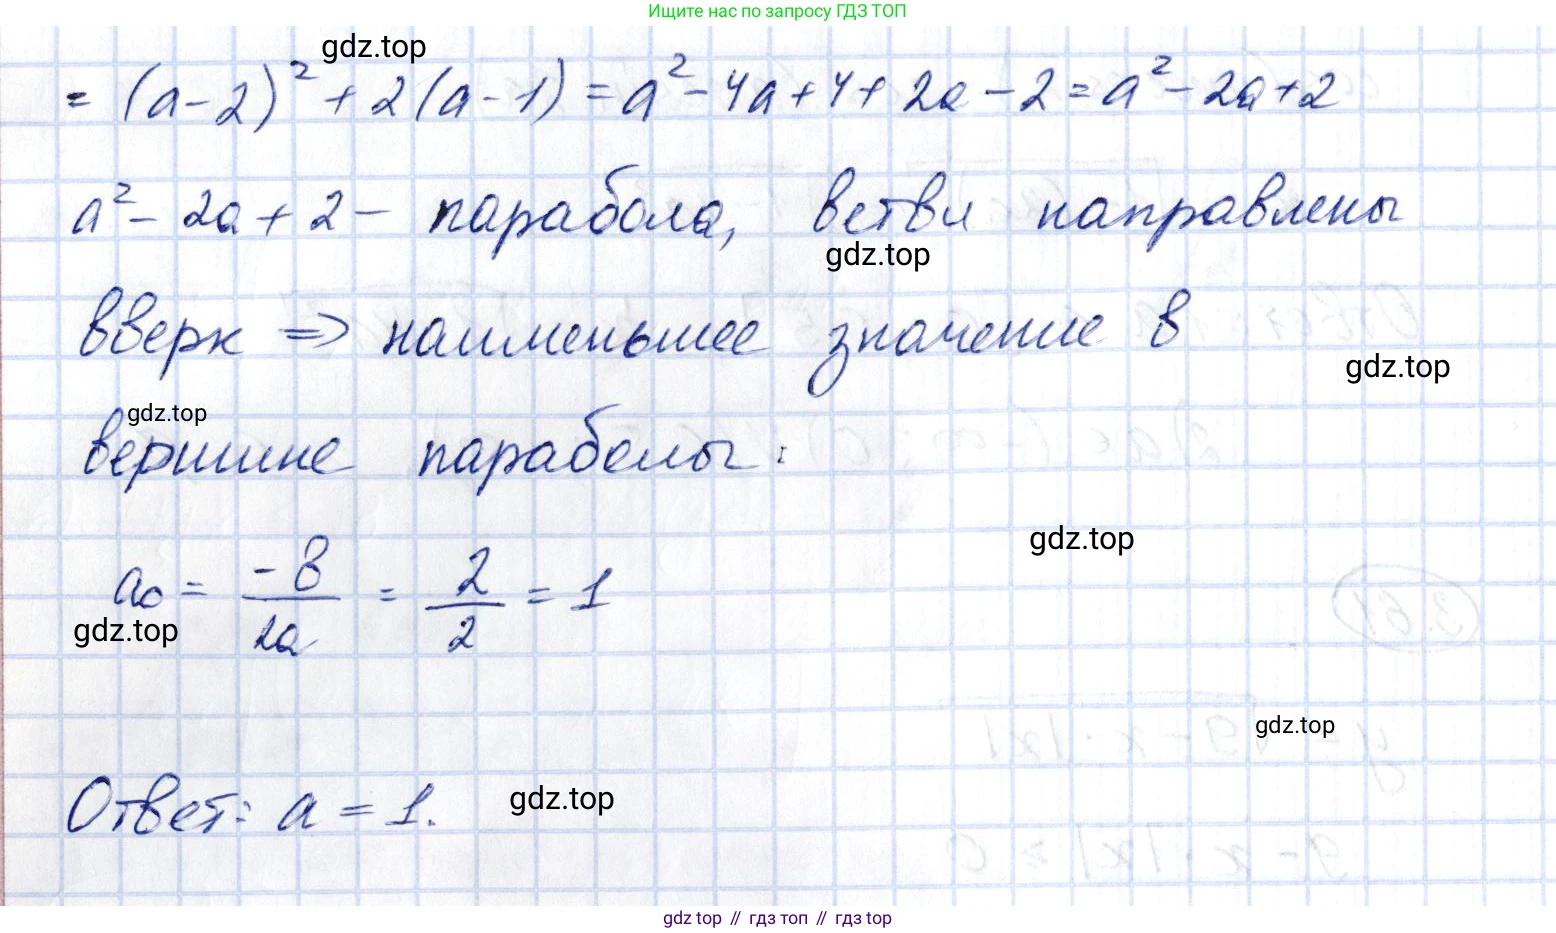 Ищите нас по запросу ГДЗ ТОП
gdz.top
= (a-2)² + 2(a-1) = a² - 4a + 4 + 2a - 2 = a² - 2a + 2
a² - 2a + 2 - парабола, ветви направлены
gdz.top
вверх => наименьшее значение в
gdz.top
gdz.top
вершине параболы:
gdz.top
a₀ = -в/2a = 2/2 = 1
gdz.top
gdz.top
Ответ: a = 1.
gdz.top
gdz top // гдз топ // гдз top